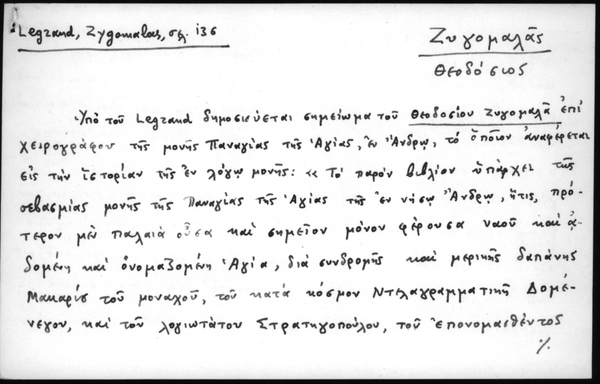 Legrand, Zygomalas, σελ. 136
Ζυγομαλᾶς
Θεοδόσιος
Ὑπὸ τοῦ Legrand δημοσιεύεται σημείωμα τοῦ Θεοδοσίου Ζυγομαλᾶ ἐπὶ
χειρογράφου τῆς μονῆς Παναγίας τῆς Ἁγίας, ἐν Ἄνδρῳ, τὸ ὁποῖον ἀναφέρεται
εἰς τὴν ἱστορίαν τῆς ἐν λόγῳ μονῆς: « Τὸ παρὸν βιβλίον ὑπάρχει τῆς
σεβασμίας μονῆς τῆς Παναγίας τῆς Ἁγίας τῆς ἐν νήσῳ Ἄνδρῳ, ἥτις, πρό-
τερον μὲν παλαιὰ οὖσα καὶ σημεῖον μόνον φέρουσα ναοῦ καὶ ᾀ-
δομένη καὶ ὀνομαζομένη Ἁγία, διὰ συνδρομῆς καὶ μερικῆς δαπάνης
Μακαρίου τοῦ μοναχοῦ, τοῦ κατὰ κόσμον Ντελαγραμματικῆ Δομέ-
νεγου, καὶ τοῦ λογιωτάτου Στρατηγοπούλου, τοῦ ἐπονομασθέντος
./.